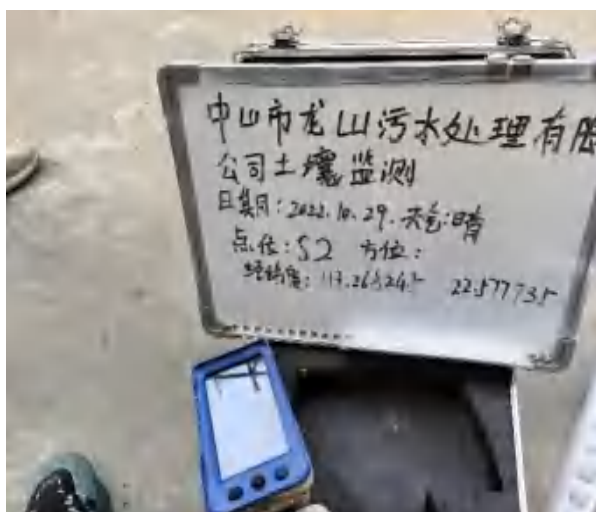 中山市龙山污水处理有限
公司土壤监测
日期:2022.10.29. 天气:晴
点位:S2 方位:
经纬度:113.268245 22.577735